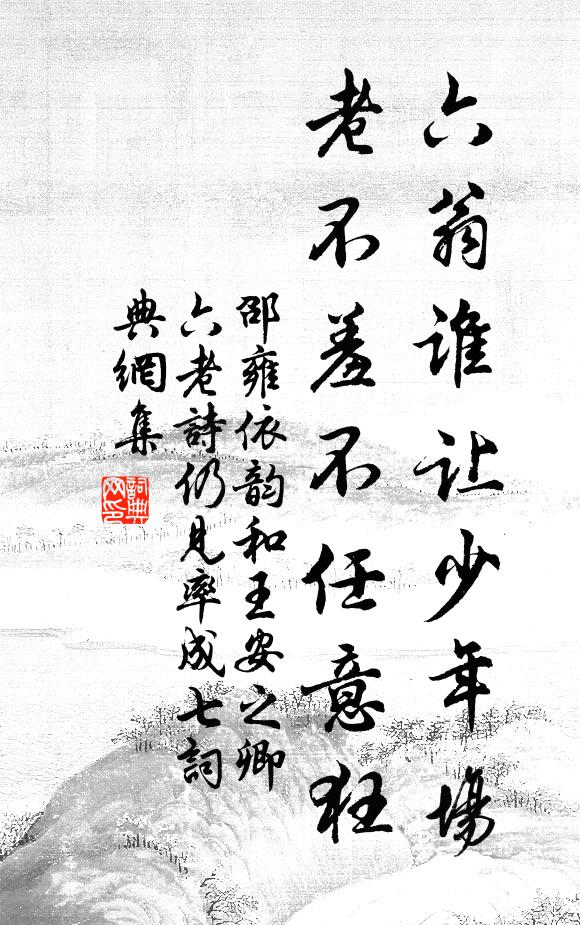 六翁谁让少年場
老不羞不任意狂
邵雍依韵和王安之卿
六老詩仍見率成七詞
典網集
詞典
网印